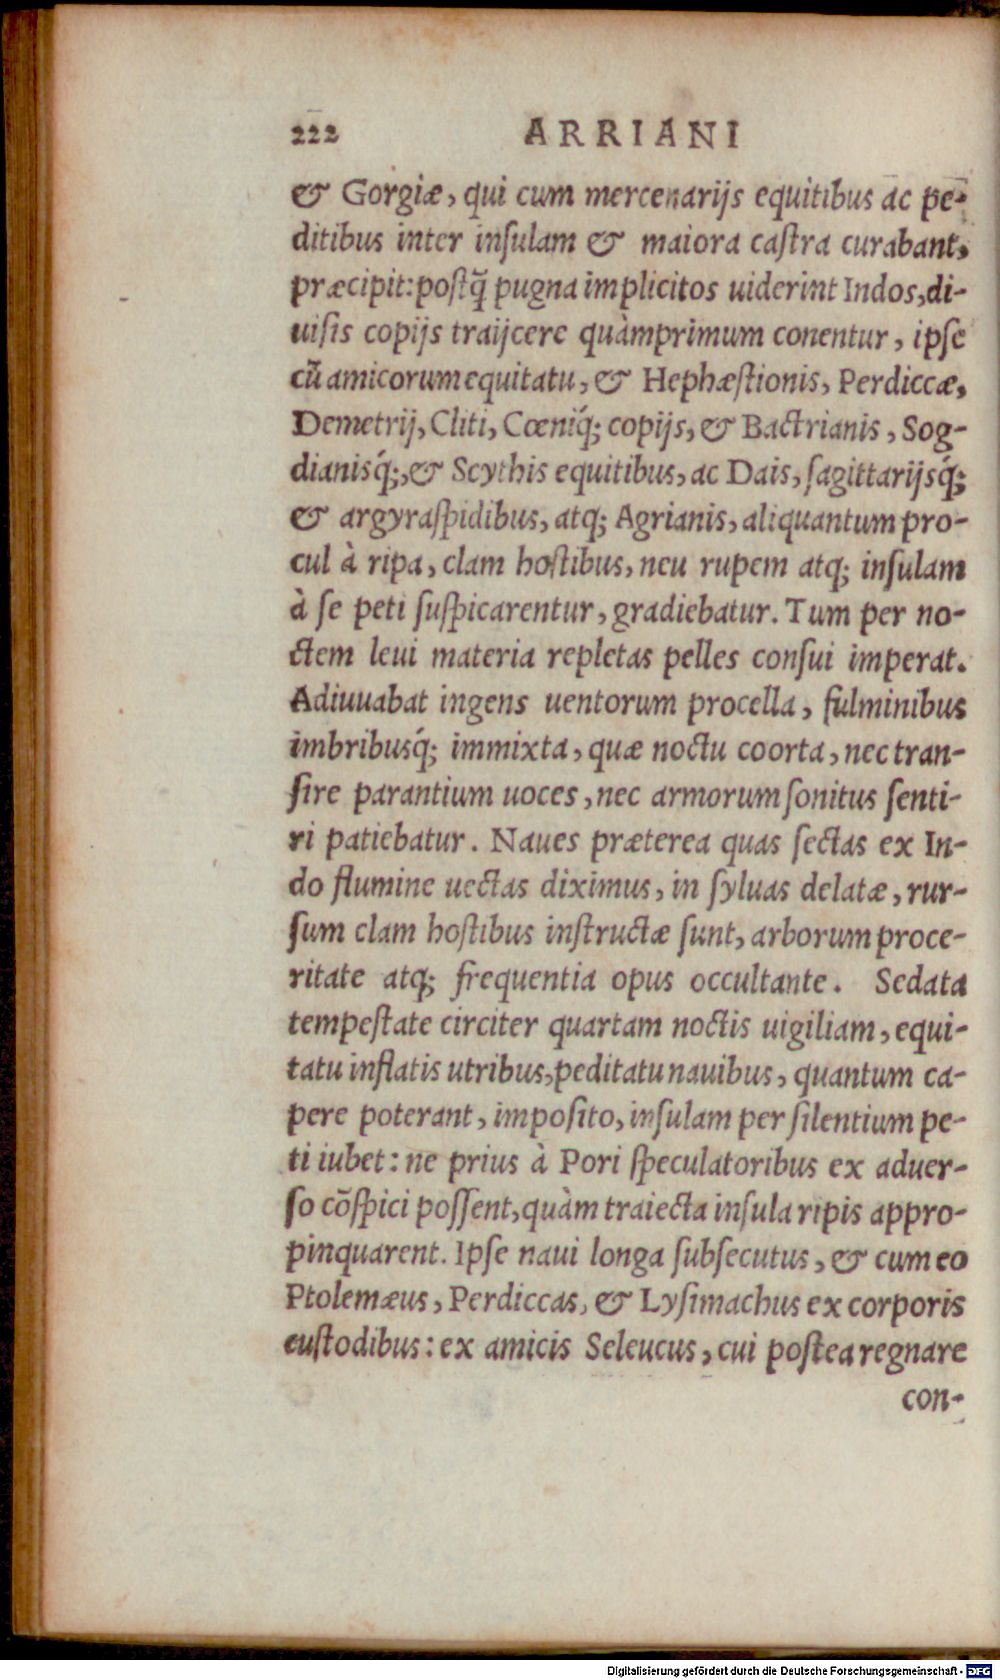 222 ARRIANI
& Gorgiæ, qui cum mercenarijs equitibus ac pe-
ditibus inter inſulam & maiora caſtra curabant,
præcipit: poſtq̃ pugna implicitos uiderint Indos, di-
uiſis copijs traijcere quàmprimum conentur, ipſe
cũ amicorum equitatu, & Hephæſtionis, Perdiccæ,
Demetrij, Cliti, Cœniq́; copijs, & Bactrianis, Sog-
dianisq́;, & Scythis equitibus, ac Dais, ſagittarijsq́;
& argyraſpidibus, atq; Agrianis, aliquantum pro-
cul à ripa, clam hoſtibus, neu rupem atq; inſulam
à ſe peti ſuſpicarentur, gradiebatur. Tum per no-
ctem leui materia repletas pelles conſui imperat.
Adiuuabat ingens uentorum procella, fulminibus
imbribusq́; immixta, quæ noctu coorta, nec tran-
ſire parantium uoces, nec armorum ſonitus ſenti-
ri patiebatur. Naues præterea quas ſectas ex In-
do flumine uectas diximus, in ſyluas delatæ, rur-
ſum clam hoſtibus inſtructæ ſunt, arborum proce-
ritate atq; frequentia opus occultante. Sedata
tempeſtate circiter quartam noctis uigiliam, equi-
tatu inflatis utribus, peditatu nauibus, quantum ca-
pere poterant, impoſito, inſulam per ſilentium pe-
ti iubet: ne prius à Pori ſpeculatoribus ex aduer-
ſo cõſpici poſſent, quàm traiecta inſula ripis appro-
pinquarent. Ipſe naui longa ſubſecutus, & cum eo
Ptolemæus, Perdiccas, & Lyſimachus ex corporis
cuſtodibus: ex amicis Seleucus, cui poſtea regnare
con-
Digitalisierung gefördert durch die Deutsche Forschungsgemeinschaft - DFG